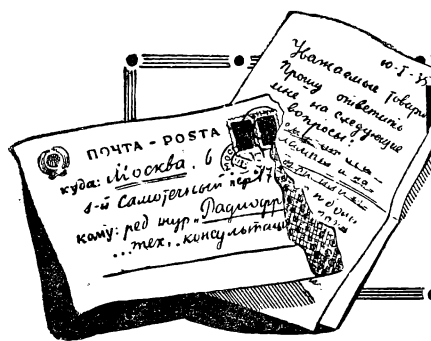 ПОЧТА - POSTA
куда: Москва, 6
1-й Самотечный пер 17
кому: ред жур. „Радиофр
...тех. консультац
10-I-35
Уважаемые товари
Прошу ответить
мне на следующие
вопросы: